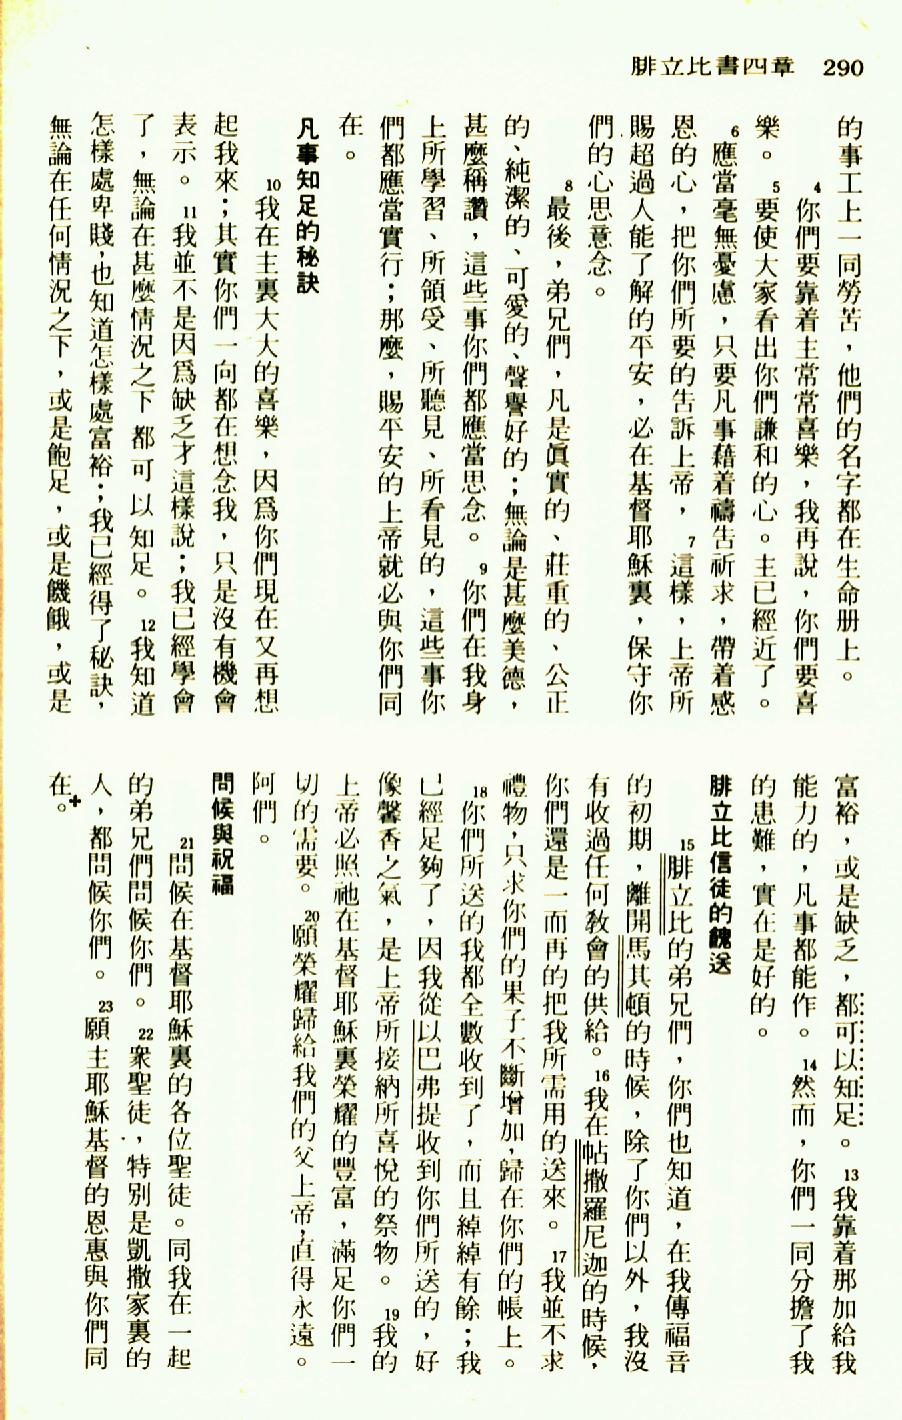 腓立比書四章 290
的事工上一同勞苦，他們的名字都在生命册上。
4你們要靠着主常常喜樂，我再說，你們要喜
樂。5要使大家看出你們謙和的心。主已經近了。
6應當毫無憂慮，只要凡事藉着禱告祈求，帶着感
恩的心，把你們所要的告訴上帝，7這樣，上帝所
賜超過人能了解的平安，必在基督耶穌裏，保守你
們的心思意念。
8最後，弟兄們，凡是眞實的、莊重的、公正
的、純潔的、可愛的、聲譽好的；無論是甚麼美德，
甚麼稱讚，這些事你們都應當思念。9你們在我身
上所學習、所領受、所聽見、所看見的，這些事你
們都應當實行；那麼，賜平安的上帝就必與你們同
在。
凡事知足的秘訣
10我在主裏大大的喜樂，因爲你們現在又再想
起我來；其實你們一向都在想念我，只是沒有機會
表示。11我並不是因爲缺乏才這樣說；我已經學會
了，無論在甚麼情況之下都可以知足。12我知道
怎樣處卑賤，也知道怎樣處富裕；我已經得了秘訣，
無論在任何情況之下，或是飽足，或是饑餓，或是
富裕，或是缺乏，都可以知足。13我靠着那加給我
能力的，凡事都能作。14然而，你們一同分擔了我
的患難，實在是好的。
腓立比信徒的餽送
15腓立比的弟兄們，你們也知道，在我傳福音
的初期，離開馬其頓的時候，除了你們以外，我沒
有收過任何教會的供給。16我在帖撒羅尼迦的時候，
你們還是一而再的把我所需用的送來。17我並不求
禮物，只求你們的果子不斷增加，歸在你們的帳上。
18你們所送的我都全數收到了，而且綽綽有餘；我
已經足夠了，因我從以巴弗提收到你們所送的，好
像馨香之氣，是上帝所接納所喜悅的祭物。19我的
上帝必照祂在基督耶穌裏榮耀的豐富，滿足你們一
切的需要。20願榮耀歸給我們的父上帝，直得永遠。
阿們。
問候與祝福
21問候在基督耶穌裏的各位聖徒。同我在一起
的弟兄們問候你們。22衆聖徒，特別是凱撒家裏的
人，都問候你們。23願主耶穌基督的恩惠與你們同
在。